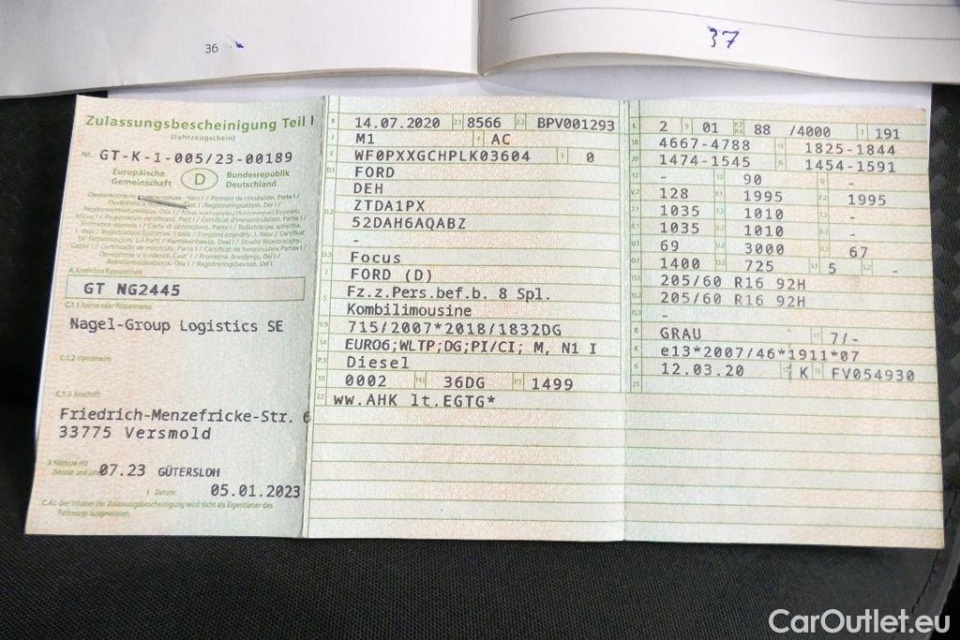 36
37
Zulassungsbescheinigung Teil I
(Fahrzeugschein)
Nr. GT-K-1-005/23-00189
Europäische Gemeinschaft
D
Bundesrepublik Deutschland
GT NG2445
Nagel-Group Logistics SE
C.1.2
C.1.3 Anschrift
Friedrich-Menzefricke-Str. 6
33775 Versmold
07.23 GÜTERSLOH
Datum: 05.01.2023
14.07.2020 8566 BPV001293
M1 AC
WF0PXXGCHPLK03604 0
FORD
DEH
ZTDA1PX
52DAH6AQABZ
-
Focus
FORD (D)
Fz.z.Pers.bef.b. 8 Spl.
Kombilimousine
715/2007*2018/1832DG
EURO6;WLTP;DG;PI/CI; M, N1 I
Diesel
0002 36DG 1499
ww.AHK lt.EGTG*
2 01 88 /4000 191
4667-4788 1825-1844
1474-1545 1454-1591
- 90 -
128 1995 1995
1035 1010 -
1035 1010 -
69 3000 67
1400 725 5 -
205/60 R16 92H
205/60 R16 92H
-
GRAU 7/-
e13*2007/46*1911*07
12.03.20 K FV054930
CarOutlet.eu